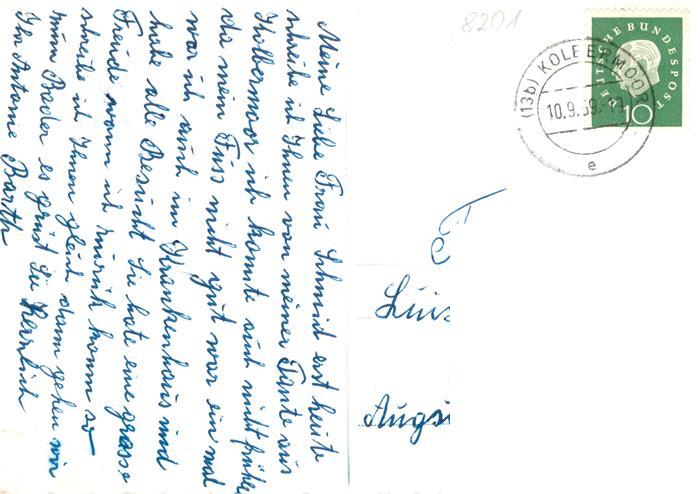 Meine Liebe Frau Schmid erst heute
schreibe ich Ihnen von meiner Tante aus
Kolbermoor ich konnte auch nicht früher
da mein Fuss nicht gut war ein mal
war ich auch im Krankenhaus und
habe alle Besucht Sie hate eine grosse
Freude wann ich zurück komm so
schreibe ich Ihnen gleich dann gehen wir
zum Bader es grüst Sie Herzlich
Ihr Antonie Barth
8201
DEUTSCHE BUNDESPOST
10
(13b) KOLBERMOOR
10.9.59.
e
F
Luis
Augs